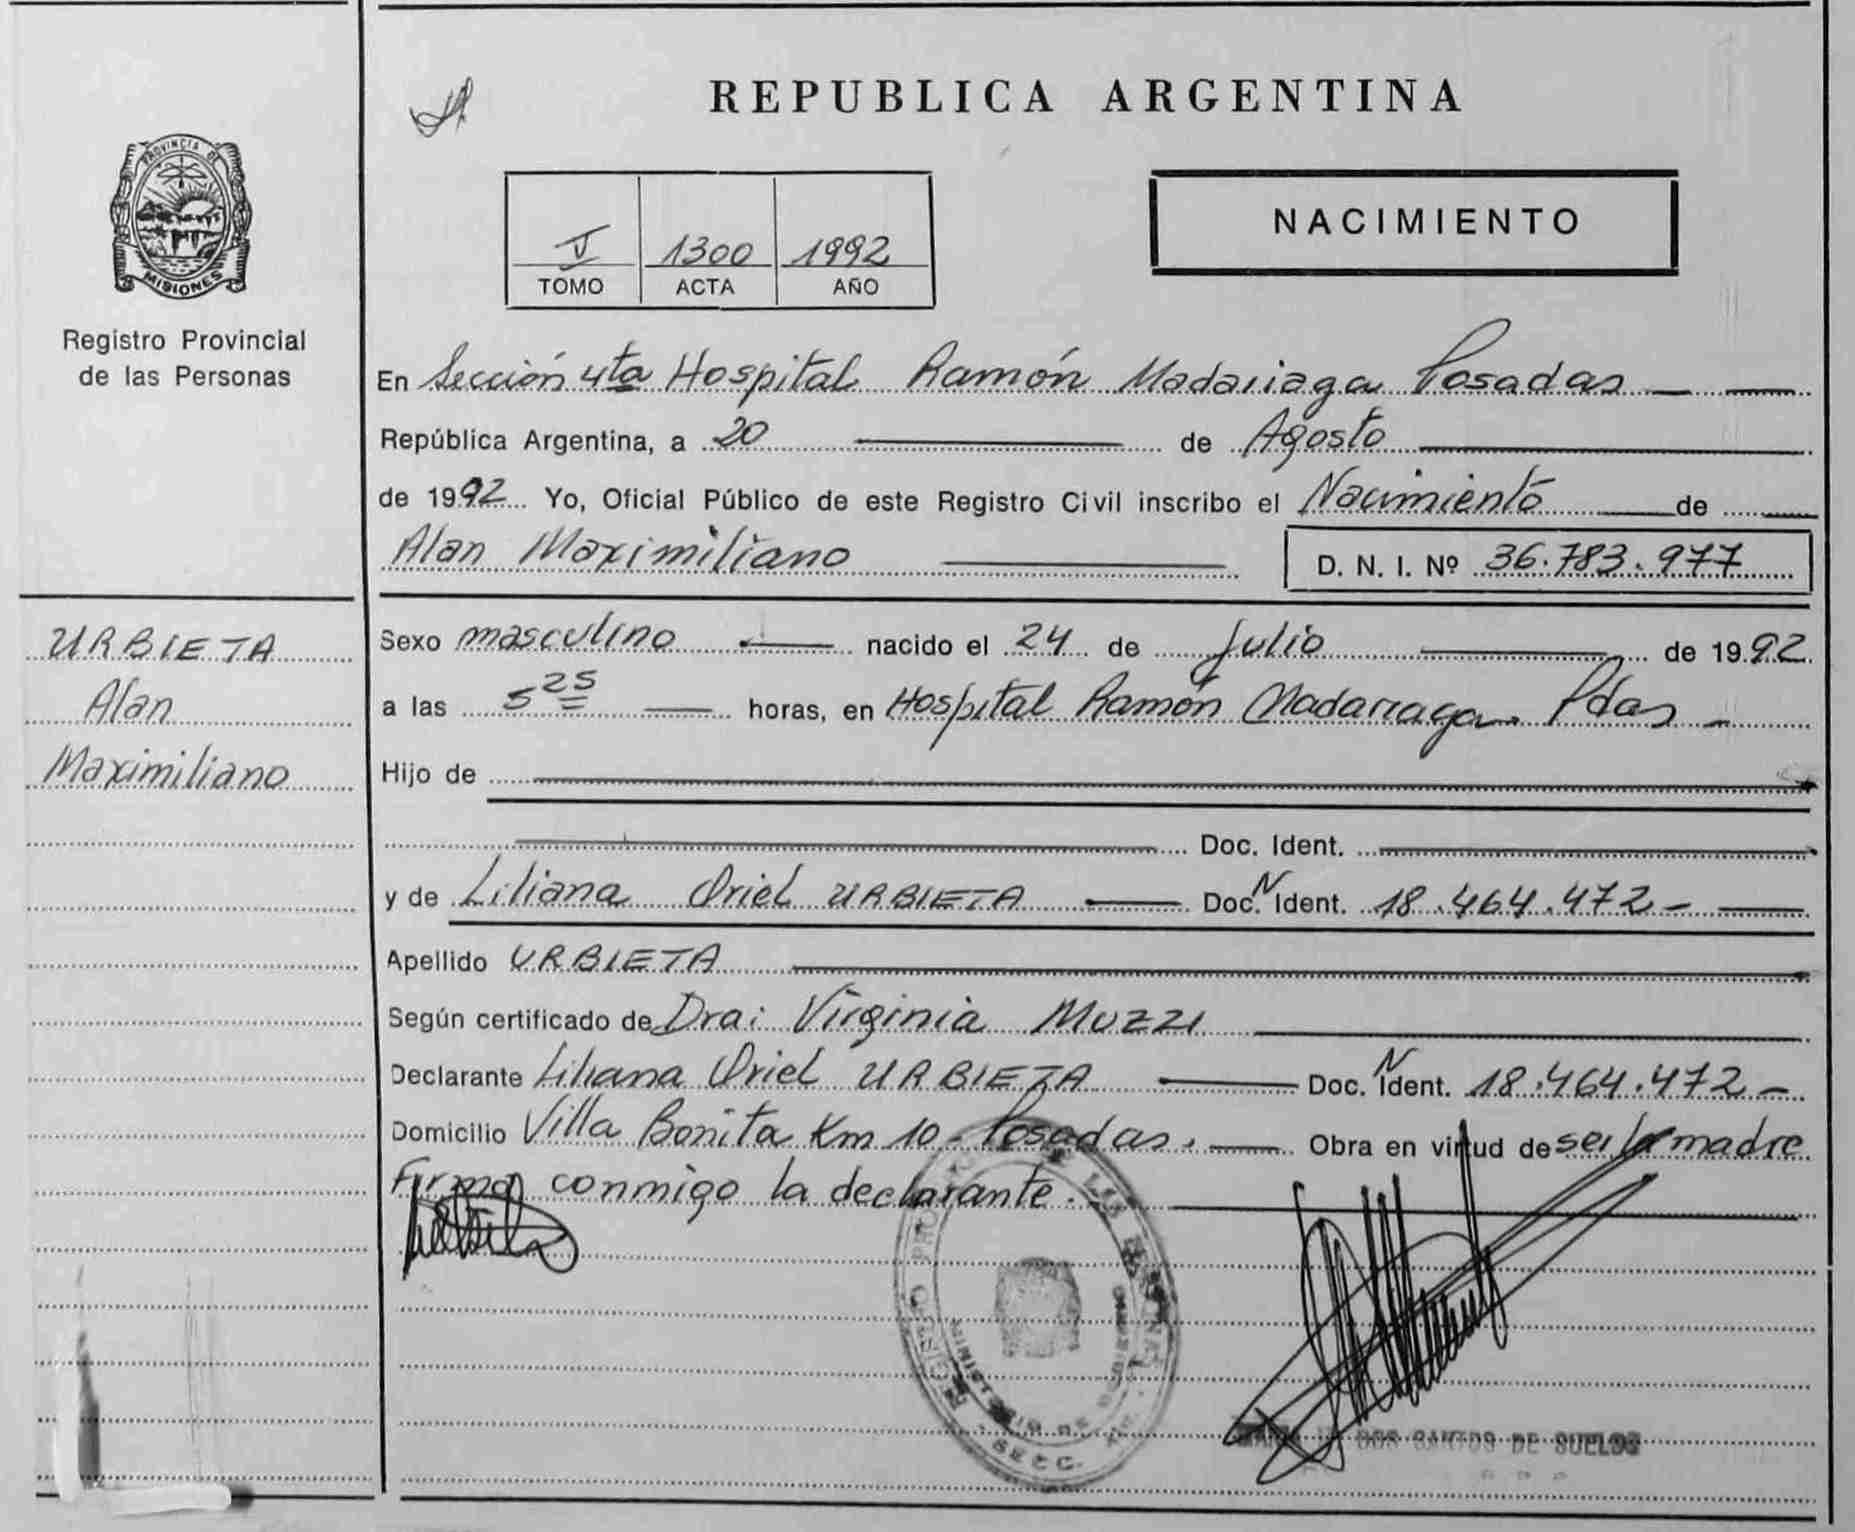 REPUBLICA ARGENTINA
PROVINCIA DE
MISIONES
Registro Provincial
de las Personas
V 1300 1992
TOMO ACTA AÑO
NACIMIENTO
En Sección 4ta Hospital Ramón Madariaga Posadas
República Argentina, a 20 de Agosto
de 1992 Yo, Oficial Público de este Registro Civil inscribo el Nacimiento de
Alan Maximiliano D. N. I. Nº 36.783.977
URBIETA
Alan
Maximiliano
Sexo masculino nacido el 24 de Julio de 1992
a las 5 25 horas, en Hospital Ramón Madariaga. Pdas
Hijo de
Doc. Ident.
y de Liliana Oriel URBIETA Doc. N Ident. 18.464.472
Apellido URBIETA
Según certificado de Dra: Virginia Muzzi
Declarante Liliana Oriel URBIETA Doc. N Ident. 18.464.472
Domicilio Villa Bonita Km 10 - Posadas. Obra en virtud de ser la madre
Firma conmigo la declarante.
REGISTRO PROV. DE LAS PERSONAS
MINISTERIO DE GOBIERNO
SECC.
DOS SANTOS DE SUELOS